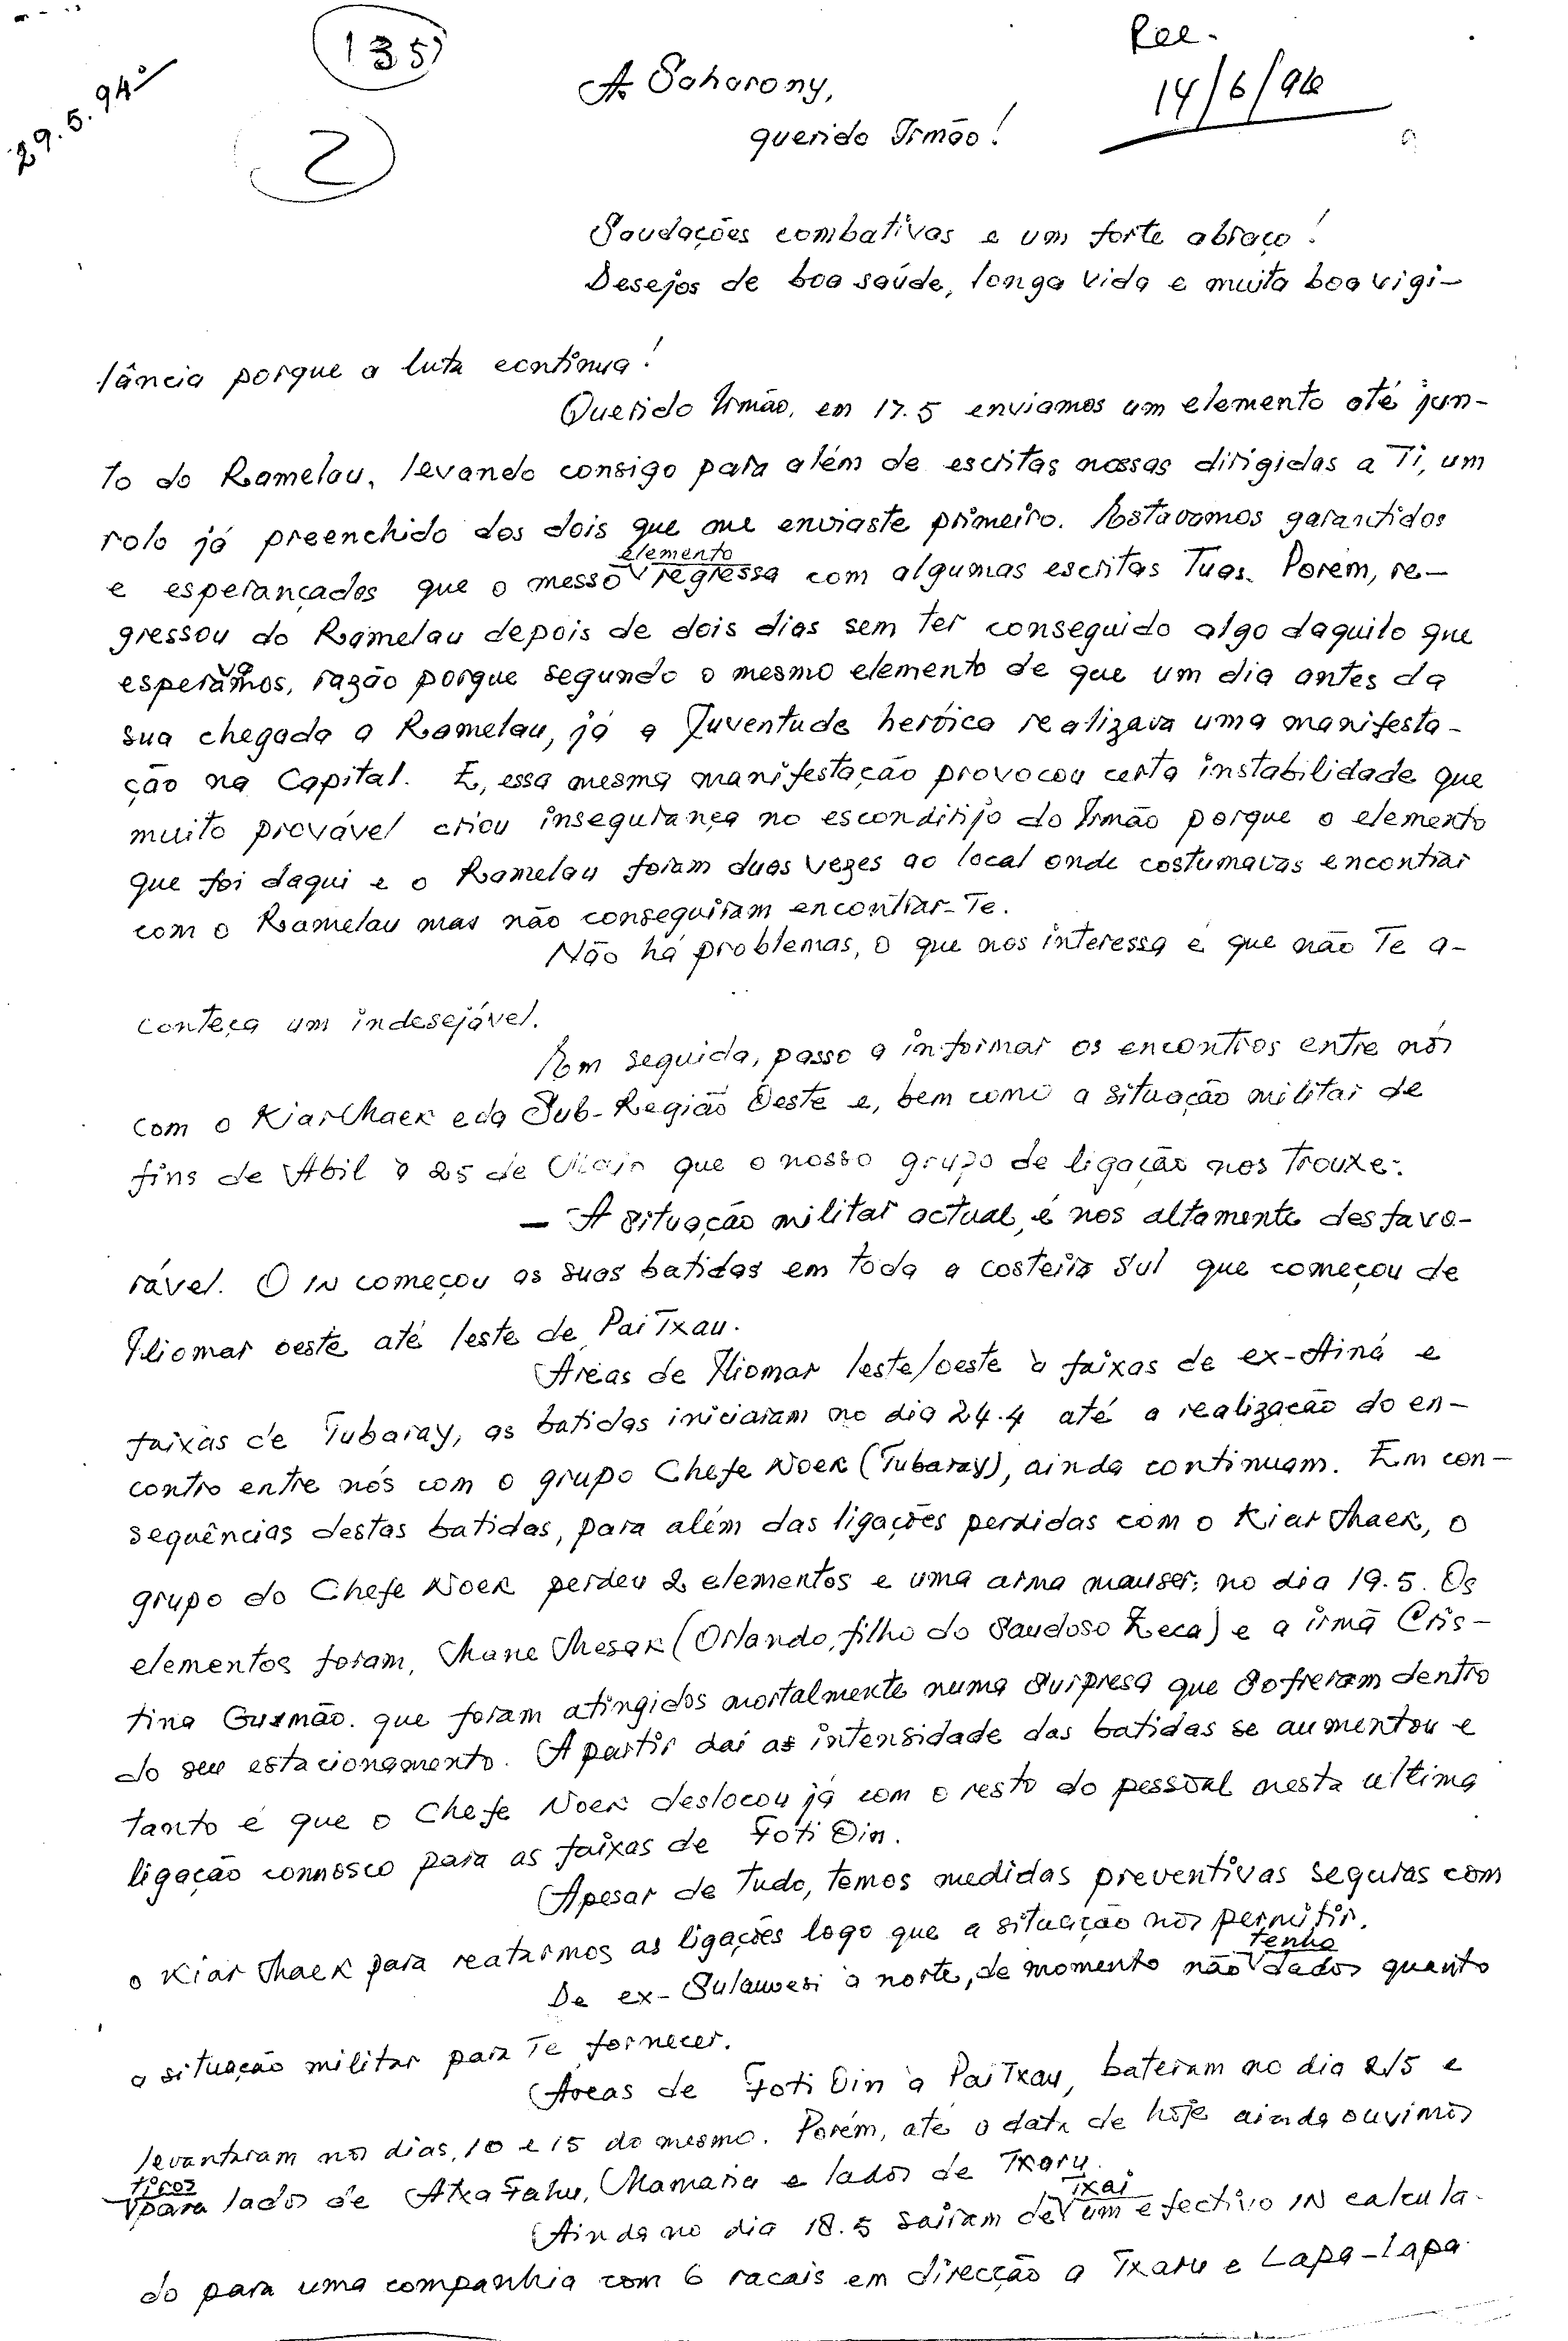 29.5.94
135
2
Rec.
14/6/94
A Saharony,
querido Irmão!
Saudações combativas e um forte abraço!
Desejos de boa saúde, longa vida e muita boa vigi-
lância porque a luta continua!
Querido Irmão, em 17.5 enviamos um elemento até jun-
to do Ramelau, levando consigo para além de escritas nossas dirigidas a Ti, um
rolo já preenchido dos dois que me enviaste primeiro. Estavamos garantidos
e esperançados que o messo elemento regressa com algumas escritas Tuas. Porem, re-
gressou do Ramelau depois de dois dias sem ter conseguido algo daquilo que
esperavamos, razão porque segundo o mesmo elemento de que um dia antes da
sua chegada a Ramelau, já a Juventude heróica realizava uma manifesta-
ção na Capital. E, essa mesma manifestação provocou certa instabilidade que
muito provável criou insegurança no esconditijo do Irmão porque o elemento
que foi daqui e o Ramelau foram duas vezes ao local onde costumavas encontrar
com o Ramelau mas não conseguiram encontrar-Te.
Não há problemas, o que nos interessa é que não Te a-
conteça um indesejável.
Em seguida, passo a informar os encontros entre nós
com o Kiar Maek e da Sub-Região Oeste e, bem como a situação militar de
fins de Abil à 25 de Maio que o nosso grupo de ligação nos trouxe:
- A situação militar actual, é nos altamente desfavo-
rável. O IN começou as suas batidas em toda a costeira Sul que começou de
Iliomar oeste até leste de PaiTxau.
Áreas de Iliomar leste/oeste à faixas de ex-Ainá e
faixas de Tubaray, as batidas iniciaram no dia 24.4 até a realização do en-
contro entre nós com o grupo Chefe Noek (Tubaray), ainda continuam. Em con-
sequências destas batidas, para além das ligações perdidas com o Kiar Maek, o
grupo do Chefe Noek perdeu 2 elementos e uma arma mauser; no dia 19.5. Os
elementos foram, Mane Mesak (Orlando, filho do Saudoso Zeca) e a irmã Cris-
tina Gusmão. que foram atingidos mortalmente numa surpresa que sofreram dentro
do seu estacionamento. A partir daí as intensidade das batidas se aumentou e
tanto é que o Chefe Noek deslocou já com o resto do pessoal nesta ultima
ligação connosco para as faixas de Foti Oin.
Apesar de tudo, temos medidas preventivas seguras com
o Kiar Maek para reatarmos as ligações logo que a situação nos permitir.
De ex-Sulawesi à norte, de momento não tenho dados quanto
a situação militar para Te fornecer.
Áreas de Foti Oin à PaiTxau, bateram no dia 2/5 e
levantaram nos dias, 10 e 15 do mesmo. Porém, até o data de hoje ainda ouvimos
tiros para lados de Atxa Fahu, Mamaria e lados de Txaru.
Ainda no dia 18.5 saíram de Txai um efectivo IN calcula-
do para uma companhia com 6 racais em direcção a Txaru e Lapa-lapa.